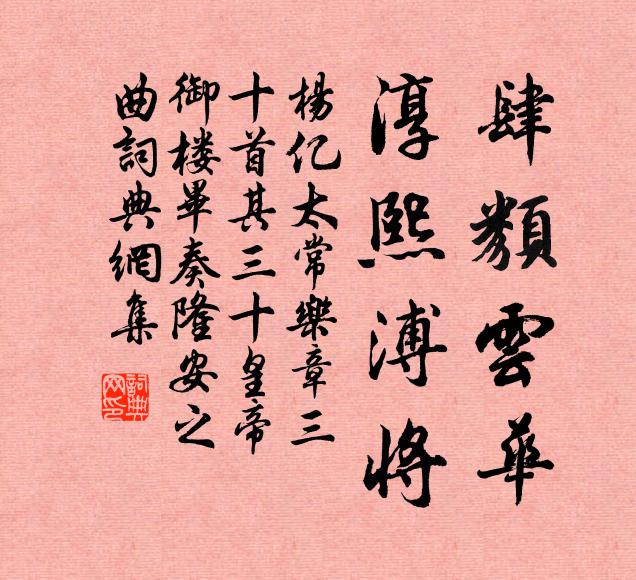 肆類雲華
淳熙溥將
楊亿太常樂章三
十首其三十皇帝
御楼畢奏隆安之
曲詞典網集
詞典网印